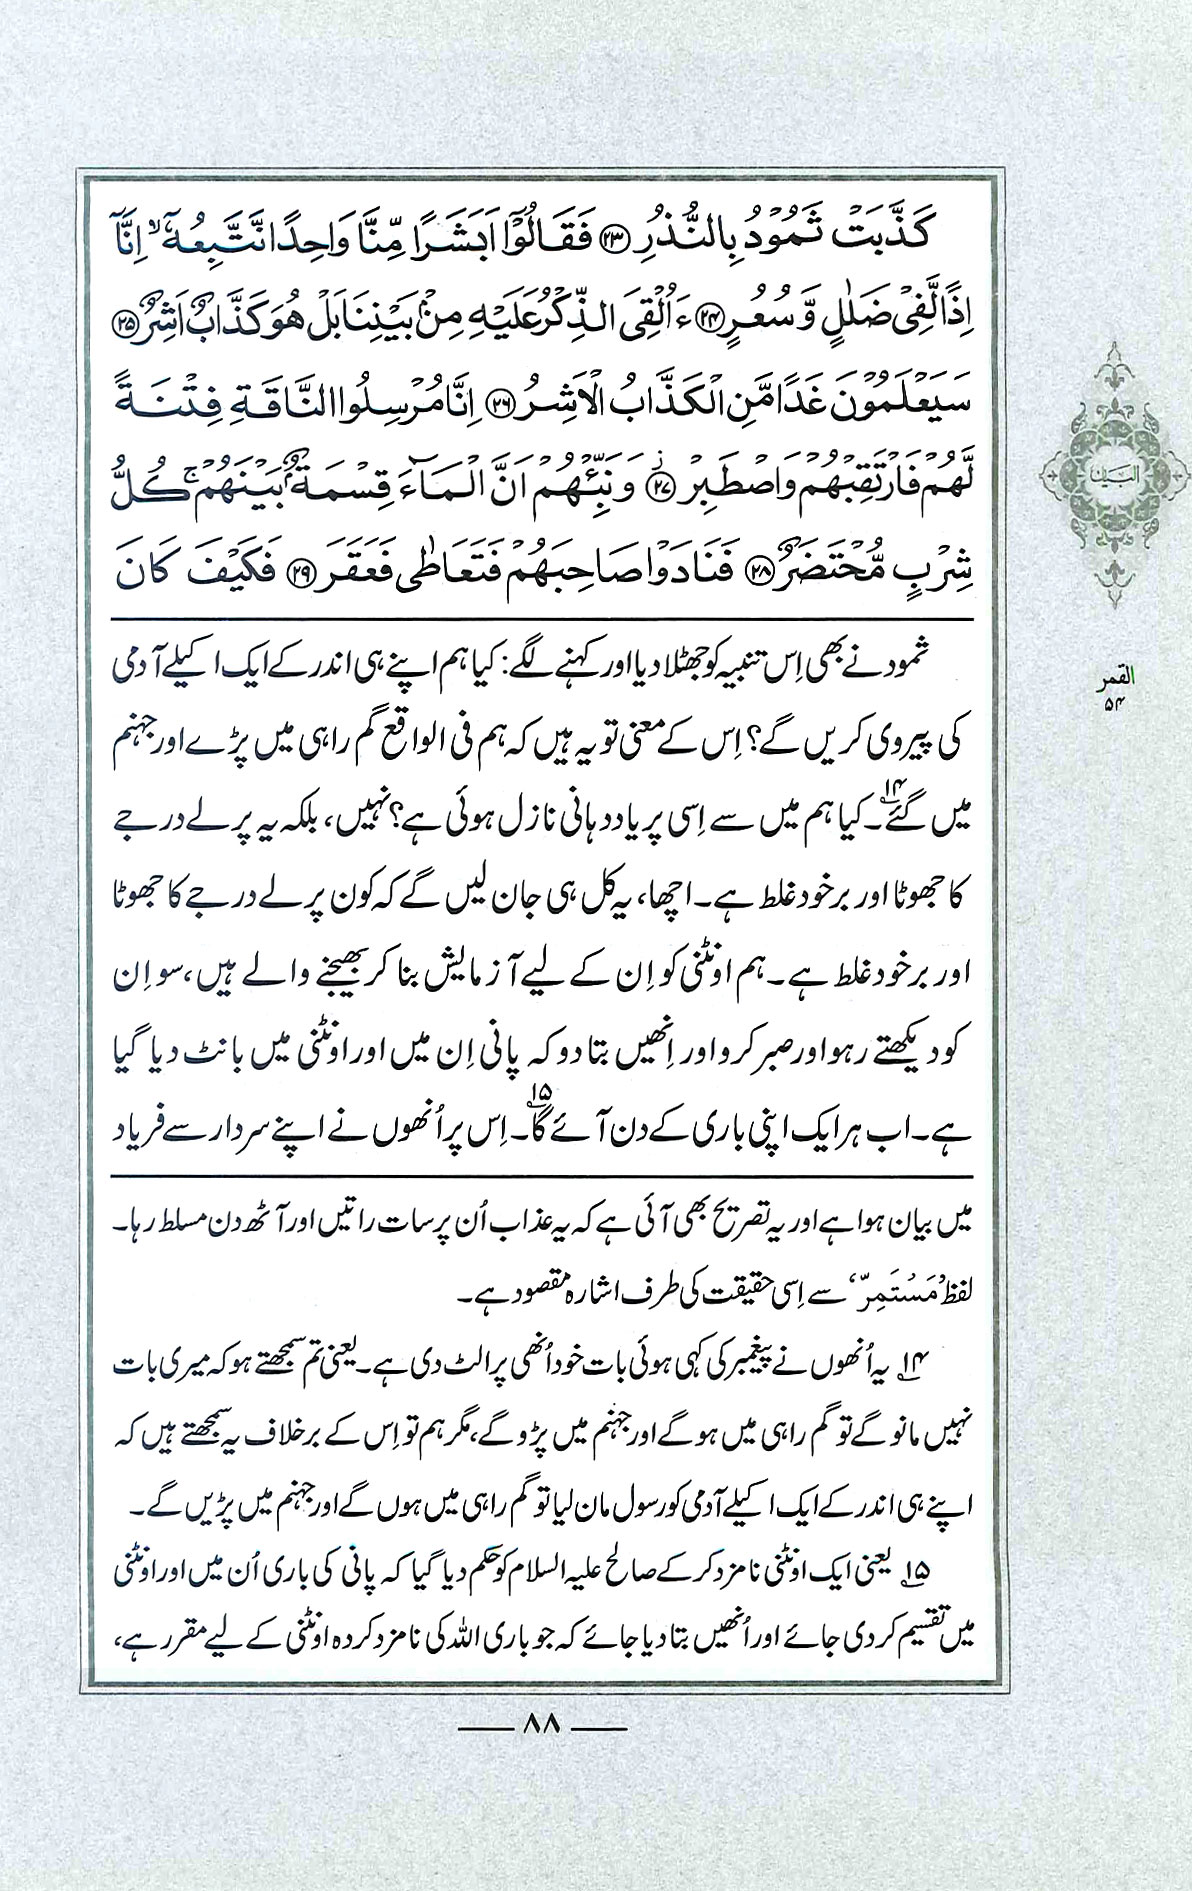 كَذَّبَتْ ثَمُوْدُ بِالنُّذُرِ ﴿۲۳﴾ فَقَالُوْٓا اَبَشَرًا مِّنَّا وَاحِدًا نَّتَّبِعُهٗٓ ۙ اِنَّآ
اِذًا لَّفِیْ ضَلٰلٍ وَّ سُعُرٍ ﴿۲۴﴾ ءَاُلْقِیَ الذِّكْرُ عَلَیْهِ مِنْۢ بَیْنِنَا بَلْ هُوَ كَذَّابٌ اَشِرٌ ﴿۲۵﴾
سَیَعْلَمُوْنَ غَدًا مَّنِ الْكَذَّابُ الْاَشِرُ ﴿۲۶﴾ اِنَّا مُرْسِلُوا النَّاقَةِ فِتْنَةً
لَّهُمْ فَارْتَقِبْهُمْ وَاصْطَبِرْ ﴿۲۷﴾ وَنَبِّئْهُمْ اَنَّ الْمَآءَ قِسْمَةٌۢ بَیْنَهُمْ ۚ كُلُّ
شِرْبٍ مُّحْتَضَرٌ ﴿۲۸﴾ فَنَادَوْا صَاحِبَهُمْ فَتَعَاطٰی فَعَقَرَ ﴿۲۹﴾ فَكَیْفَ كَانَ
ثمود نے بھی اِس تنبیہ کو جھٹلا دیا اور کہنے لگے: کیا ہم اپنے ہی اندر کے ایک اکیلے آدمی
کی پیروی کریں گے؟ اِس کے معنی تو یہ ہیں کہ ہم فی الواقع گم راہی میں پڑے اور جہنم
میں گئے۱۴۔ کیا ہم میں سے اِسی پر یاددہانی نازل ہوئی ہے؟ نہیں، بلکہ یہ پرلے درجے
کا جھوٹا اور برخود غلط ہے۔ اچھا، یہ کل ہی جان لیں گے کہ کون پرلے درجے کا جھوٹا
اور برخود غلط ہے۔ ہم اونٹنی کو اِن کے لیے آزمایش بنا کر بھیجنے والے ہیں، سو اِن
کو دیکھتے رہو اور صبر کرو اور اِنھیں بتا دو کہ پانی اِن میں اور اونٹنی میں بانٹ دیا گیا
ہے۔ اب ہر ایک اپنی باری کے دن آئے گا۱۵۔ اِس پر اُنھوں نے اپنے سردار سے فریاد
میں بیان ہوا ہے اور یہ تصریح بھی آئی ہے کہ یہ عذاب اُن پر سات راتیں اور آٹھ دن مسلط رہا۔
لفظ ’مُسْتَمِرّ‘ سے اِسی حقیقت کی طرف اشارہ مقصود ہے۔
۱۴ یہ اُنھوں نے پیغمبر کی کہی ہوئی بات خود اُنھی پر الٹ دی ہے۔ یعنی تم سمجھتے ہو کہ میری بات
نہیں مانو گے تو گم راہی میں ہو گے اور جہنم میں پڑو گے، مگر ہم تو اِس کے برخلاف یہ سمجھتے ہیں کہ
اپنے ہی اندر کے ایک اکیلے آدمی کو رسول مان لیا تو گم راہی میں ہوں گے اور جہنم میں پڑیں گے۔
۱۵ یعنی ایک اونٹنی نامزد کر کے صالح علیہ السلام کو حکم دیا گیا کہ پانی کی باری اُن میں اور اونٹنی
میں تقسیم کر دی جائے اور اُنھیں بتا دیا جائے کہ جو باری اللہ کی نامزد کردہ اونٹنی کے لیے مقرر ہے،
البیان
القمر
۵۴
۸۸